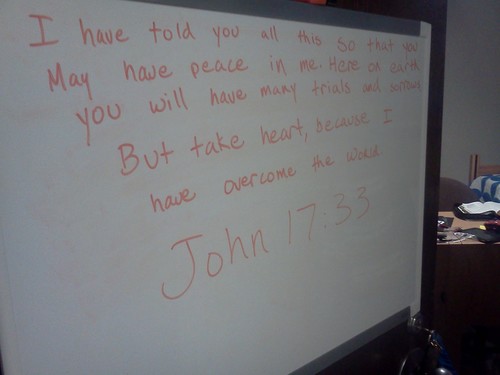 I have told you all this so that you
May have peace in me. Here on earth
you will have many trials and sorrows
But take heart, because I
have overcome the world.
John 17:33